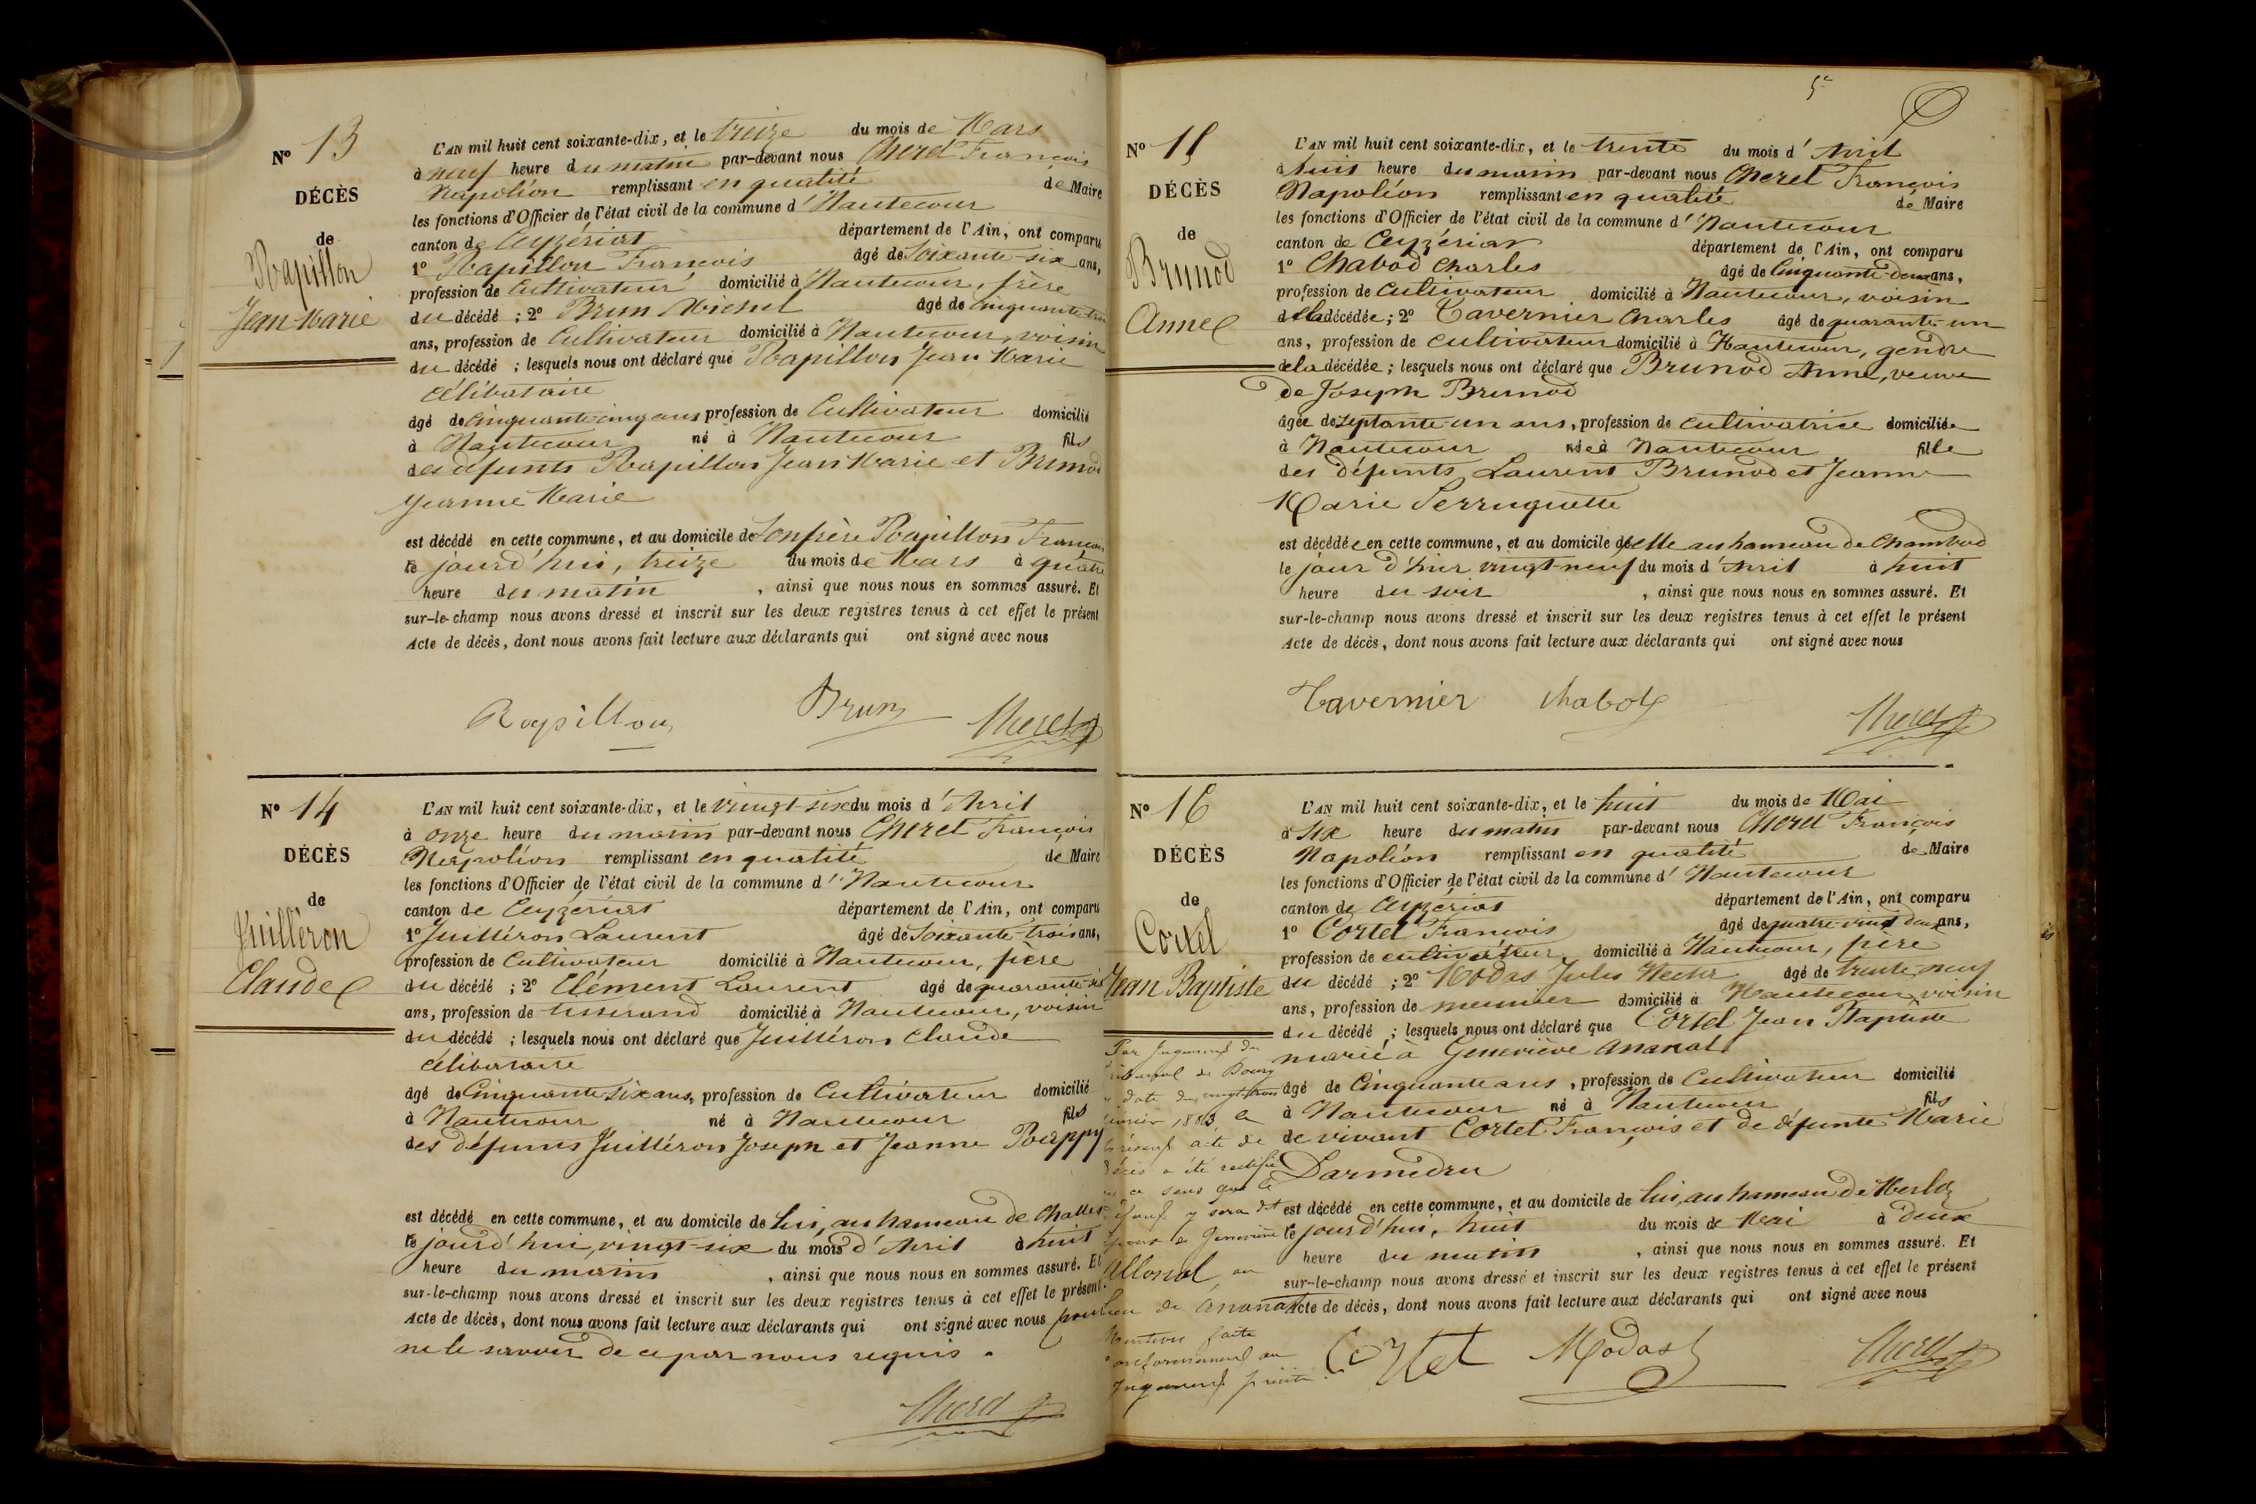 Nº 13
DÉCÈS
de
Rapillon
Jean Marie
L'AN mil huit cent soixante-dix, et le treize du mois de Mars
à neuf heure du matin par-devant nous Cheret François
Napoléon remplissant en qualité de Maire
les fonctions d'Officier de l'état civil de la commune d'Hautecour
canton de Ceyzériat département de l'Ain, ont comparu
1º Rapillon François âgé de Soixante-six ans,
profession de Cultivateur domicilié à Hautecour, frère
du décédé ; 2º Brun Michel âgé de cinquante
ans, profession de Cultivateur domicilié à Hautecour, voisin
du décédé ; lesquels nous ont déclaré que Rapillon Jean Marie
célibataire
âgé de cinquante cinq ans profession de Cultivateur domicilié
à Hautecour né à Hautecour fils
des défunts Rapillon Jean Marie et Brunod
Jeanne Marie
est décédé en cette commune, et au domicile de Son frère Rapillon François
le jourd'hui, treize du mois de Mars à quatre
heure du matin , ainsi que nous nous en sommes assuré. Et
sur-le-champ nous avons dressé et inscrit sur les deux registres tenus à cet effet le présent
Acte de décès, dont nous avons fait lecture aux déclarants qui ont signé avec nous
Rapillon Brun Cheret
Nº 14
DÉCÈS
de
Juilléron
Claude
L'AN mil huit cent soixante-dix, et le vingt-six du mois d'Avril
à onze heure du matin par-devant nous Cheret François
Napoléon remplissant en qualité de Maire
les fonctions d'Officier de l'état civil de la commune d'Hautecour
canton de Ceyzériat département de l'Ain, ont comparu
1º Juilléron Laurent âgé de Soixante-trois ans,
profession de Cultivateur domicilié à Hautecour, frère
du décédé ; 2º Clément Laurent âgé de quarante-six
ans, profession de tisserand domicilié à Hautecour, voisin
du décédé ; lesquels nous ont déclaré que Juilléron Claude
célibataire
âgé de Cinquante Six ans, profession de Cultivateur domicilié
à Hautecour né à Hautecour fils
des défunts Juilléron Joseph et Jeanne Rappy
est décédé en cette commune, et au domicile de lui, au hameau de Challes
le jourd'hui, vingt-six du mois d'Avril à huit
heure du matin , ainsi que nous nous en sommes assuré. Et
sur-le-champ nous avons dressé et inscrit sur les deux registres tenus à cet effet le présent
Acte de décès, dont nous avons fait lecture aux déclarants qui ont signé avec nous pour
ne le savoir de ce par nous requis.
Cheret
5
Nº 15
DÉCÈS
de
Brunod
Anne
L'AN mil huit cent soixante-dix, et le trente du mois d'Avril
à huit heure du matin par-devant nous Cheret François
Napoléon remplissant en qualité de Maire
les fonctions d'Officier de l'état civil de la commune d'Hautecour
canton de Ceyzériat département de l'Ain, ont comparu
1º Chabod Charles âgé de Cinquante-deux ans,
profession de Cultivateur domicilié à Hautecour, voisin
de la décédée ; 2º Tavernier Charles âgé de quarante-un
ans, profession de cultivateur domicilié à Hautecour, gendre
de la décédée ; lesquels nous ont déclaré que Brunod Anne, veuve
de Joseph Brunod
âgée de septante-un ans, profession de cultivatrice domiciliée
à Hautecour née à Hautecour fille
des défunts Laurent Brunod et Jeanne
Marie Perruquette
est décédée en cette commune, et au domicile d'elle au hameau de Chambod
le jour d'hier vingt-neuf du mois d'Avril à huit
heure du soir , ainsi que nous nous en sommes assuré. Et
sur-le-champ nous avons dressé et inscrit sur les deux registres tenus à cet effet le présent
Acte de décès, dont nous avons fait lecture aux déclarants qui ont signé avec nous
Tavernier Chabod Cheret
Nº 16
DÉCÈS
de
Cortel
Jean Baptiste
L'AN mil huit cent soixante-dix, et le huit du mois de Mai
à six heure du matin par-devant nous Cheret François
Napoléon remplissant en qualité de Maire
les fonctions d'Officier de l'état civil de la commune d'Hautecour
canton de Ceyzériat département de l'Ain, ont comparu
1º Cortel François âgé de quatre vingt deux ans,
profession de cultivateur domicilié à Hautecour, père
du décédé ; 2º Modas Jules âgé de trente-neuf
ans, profession de meunier domicilié à Hautecour, voisin
du décédé ; lesquels nous ont déclaré que Cortel Jean Baptiste
marié à Geneviève Ananal
âgé de Cinquante ans, profession de Cultivateur domicilié
à Hautecour né à Hautecour fils
de vivant Cortel François et de défunte Marie
Darmédru
est décédé en cette commune, et au domicile de lui, au hameau de Merloz
le jourd'hui, huit du mois de Mai à deux
heure du matin , ainsi que nous nous en sommes assuré. Et
sur-le-champ nous avons dressé et inscrit sur les deux registres tenus à cet effet le présent
Acte de décès, dont nous avons fait lecture aux déclarants qui ont signé avec nous
Cortel Modas Cheret
Par Jugement du
tribunal de Bourg
date du vingt trois
février 1883, le
présent acte de
décès a été rectifié
en ce sens que le
défunt y sera dit
époux de Geneviève
Allonal, au
lieu de Ananal
Mention faite
conformément au
Jugement précité.